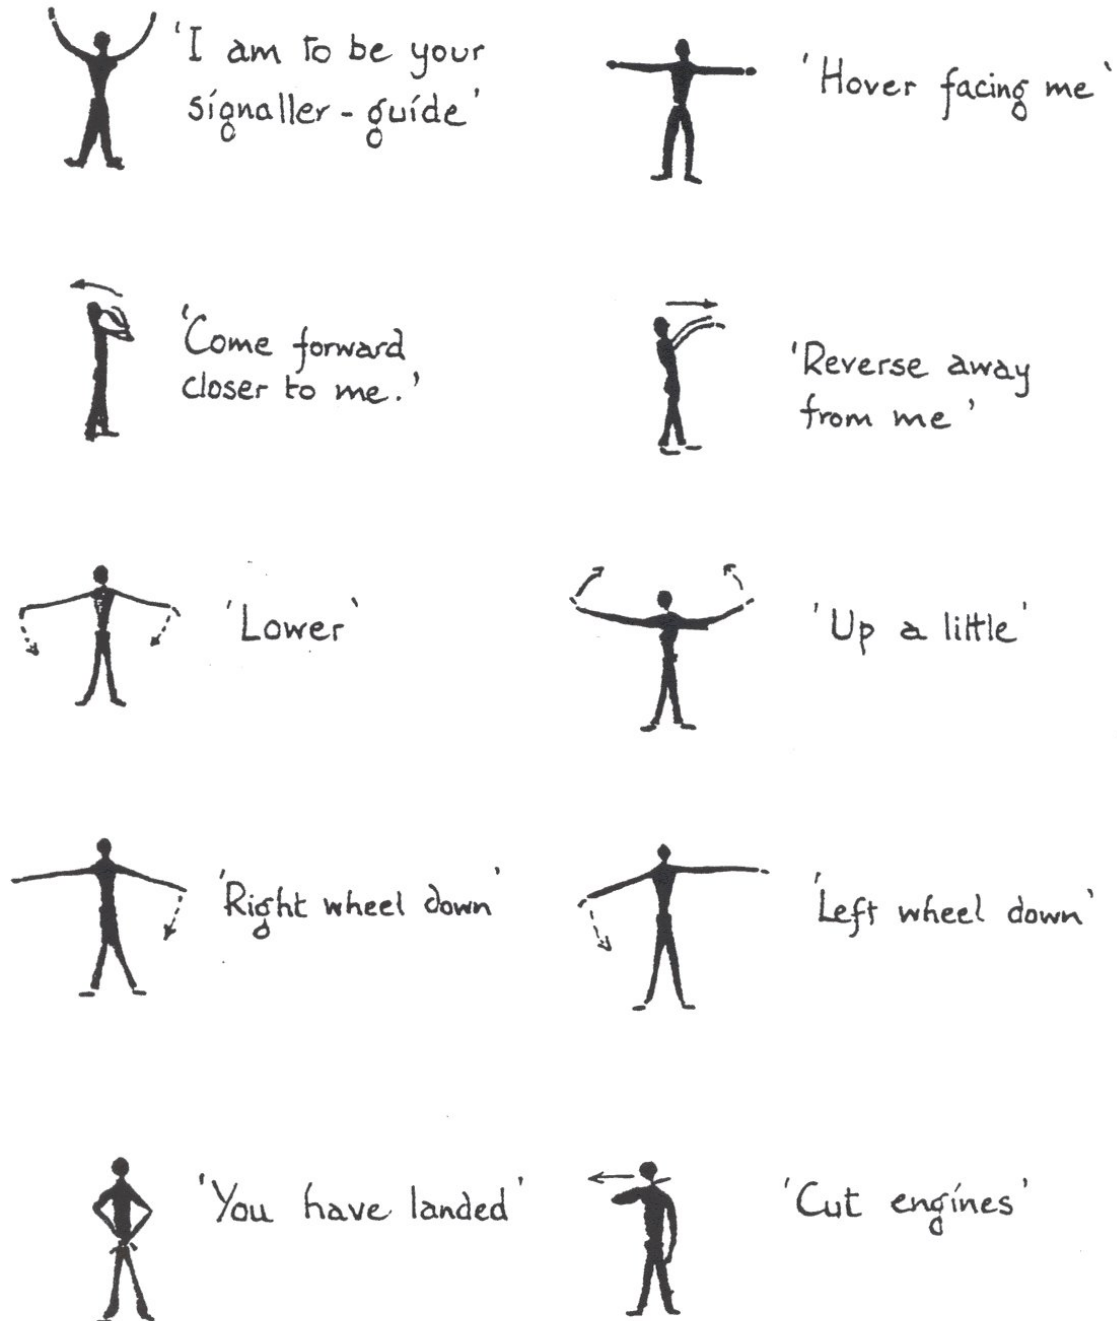 'I am to be your
signaller - guide'
'Hover facing me'
'Come forward
closer to me.'
'Reverse away
from me'
'Lower'
'Up a little'
'Right wheel down'
'Left wheel down'
'You have landed'
'Cut engines'